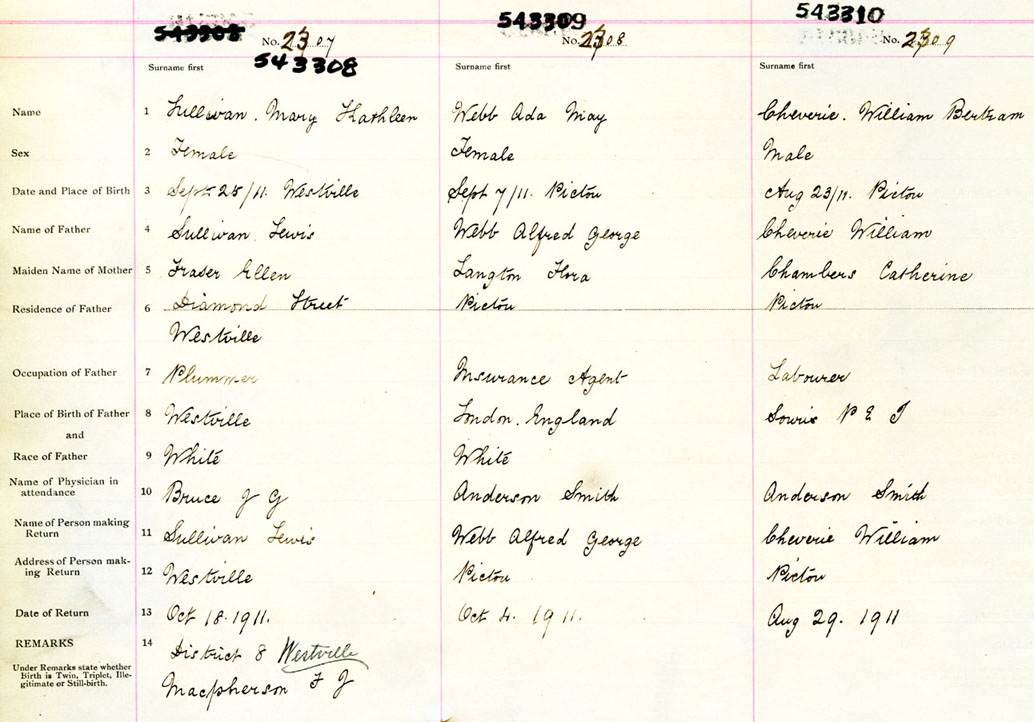 543308 543309 543310
No. 2307 No. 2308 No. 2309
543308
Surname first Surname first Surname first
Name 1 Sullivan. Mary Kathleen Webb Ada May Cheverie. William Bertram
Sex 2 Female Female Male
Date and Place of Birth 3 Sept 28/11. Westville Sept 7/11. Pictou Aug 23/11. Pictou
Name of Father 4 Sullivan Lewis Webb Alfred George Cheverie William
Maiden Name of Mother 5 Fraser Ellen Langton Flora Chambers Catherine
Residence of Father 6 Diamond Street Pictou Pictou
Westville
Occupation of Father 7 Plummer Insurance Agent Labourer
Place of Birth of Father 8 Westville London. England Souris P E I
and
Race of Father 9 White White
Name of Physician in
attendance 10 Bruce J G Anderson Smith Anderson Smith
Name of Person making
Return 11 Sullivan Lewis Webb Alfred George Cheverie William
Address of Person mak-
ing Return 12 Westville Pictou Pictou
Date of Return 13 Oct 18. 1911. Oct 4. 1911. Aug 29. 1911
REMARKS 14 District 8 Westville
Under Remarks state whether
Birth is Twin, Triplet, Ille-
gitimate or Still-birth.
Macpherson F J